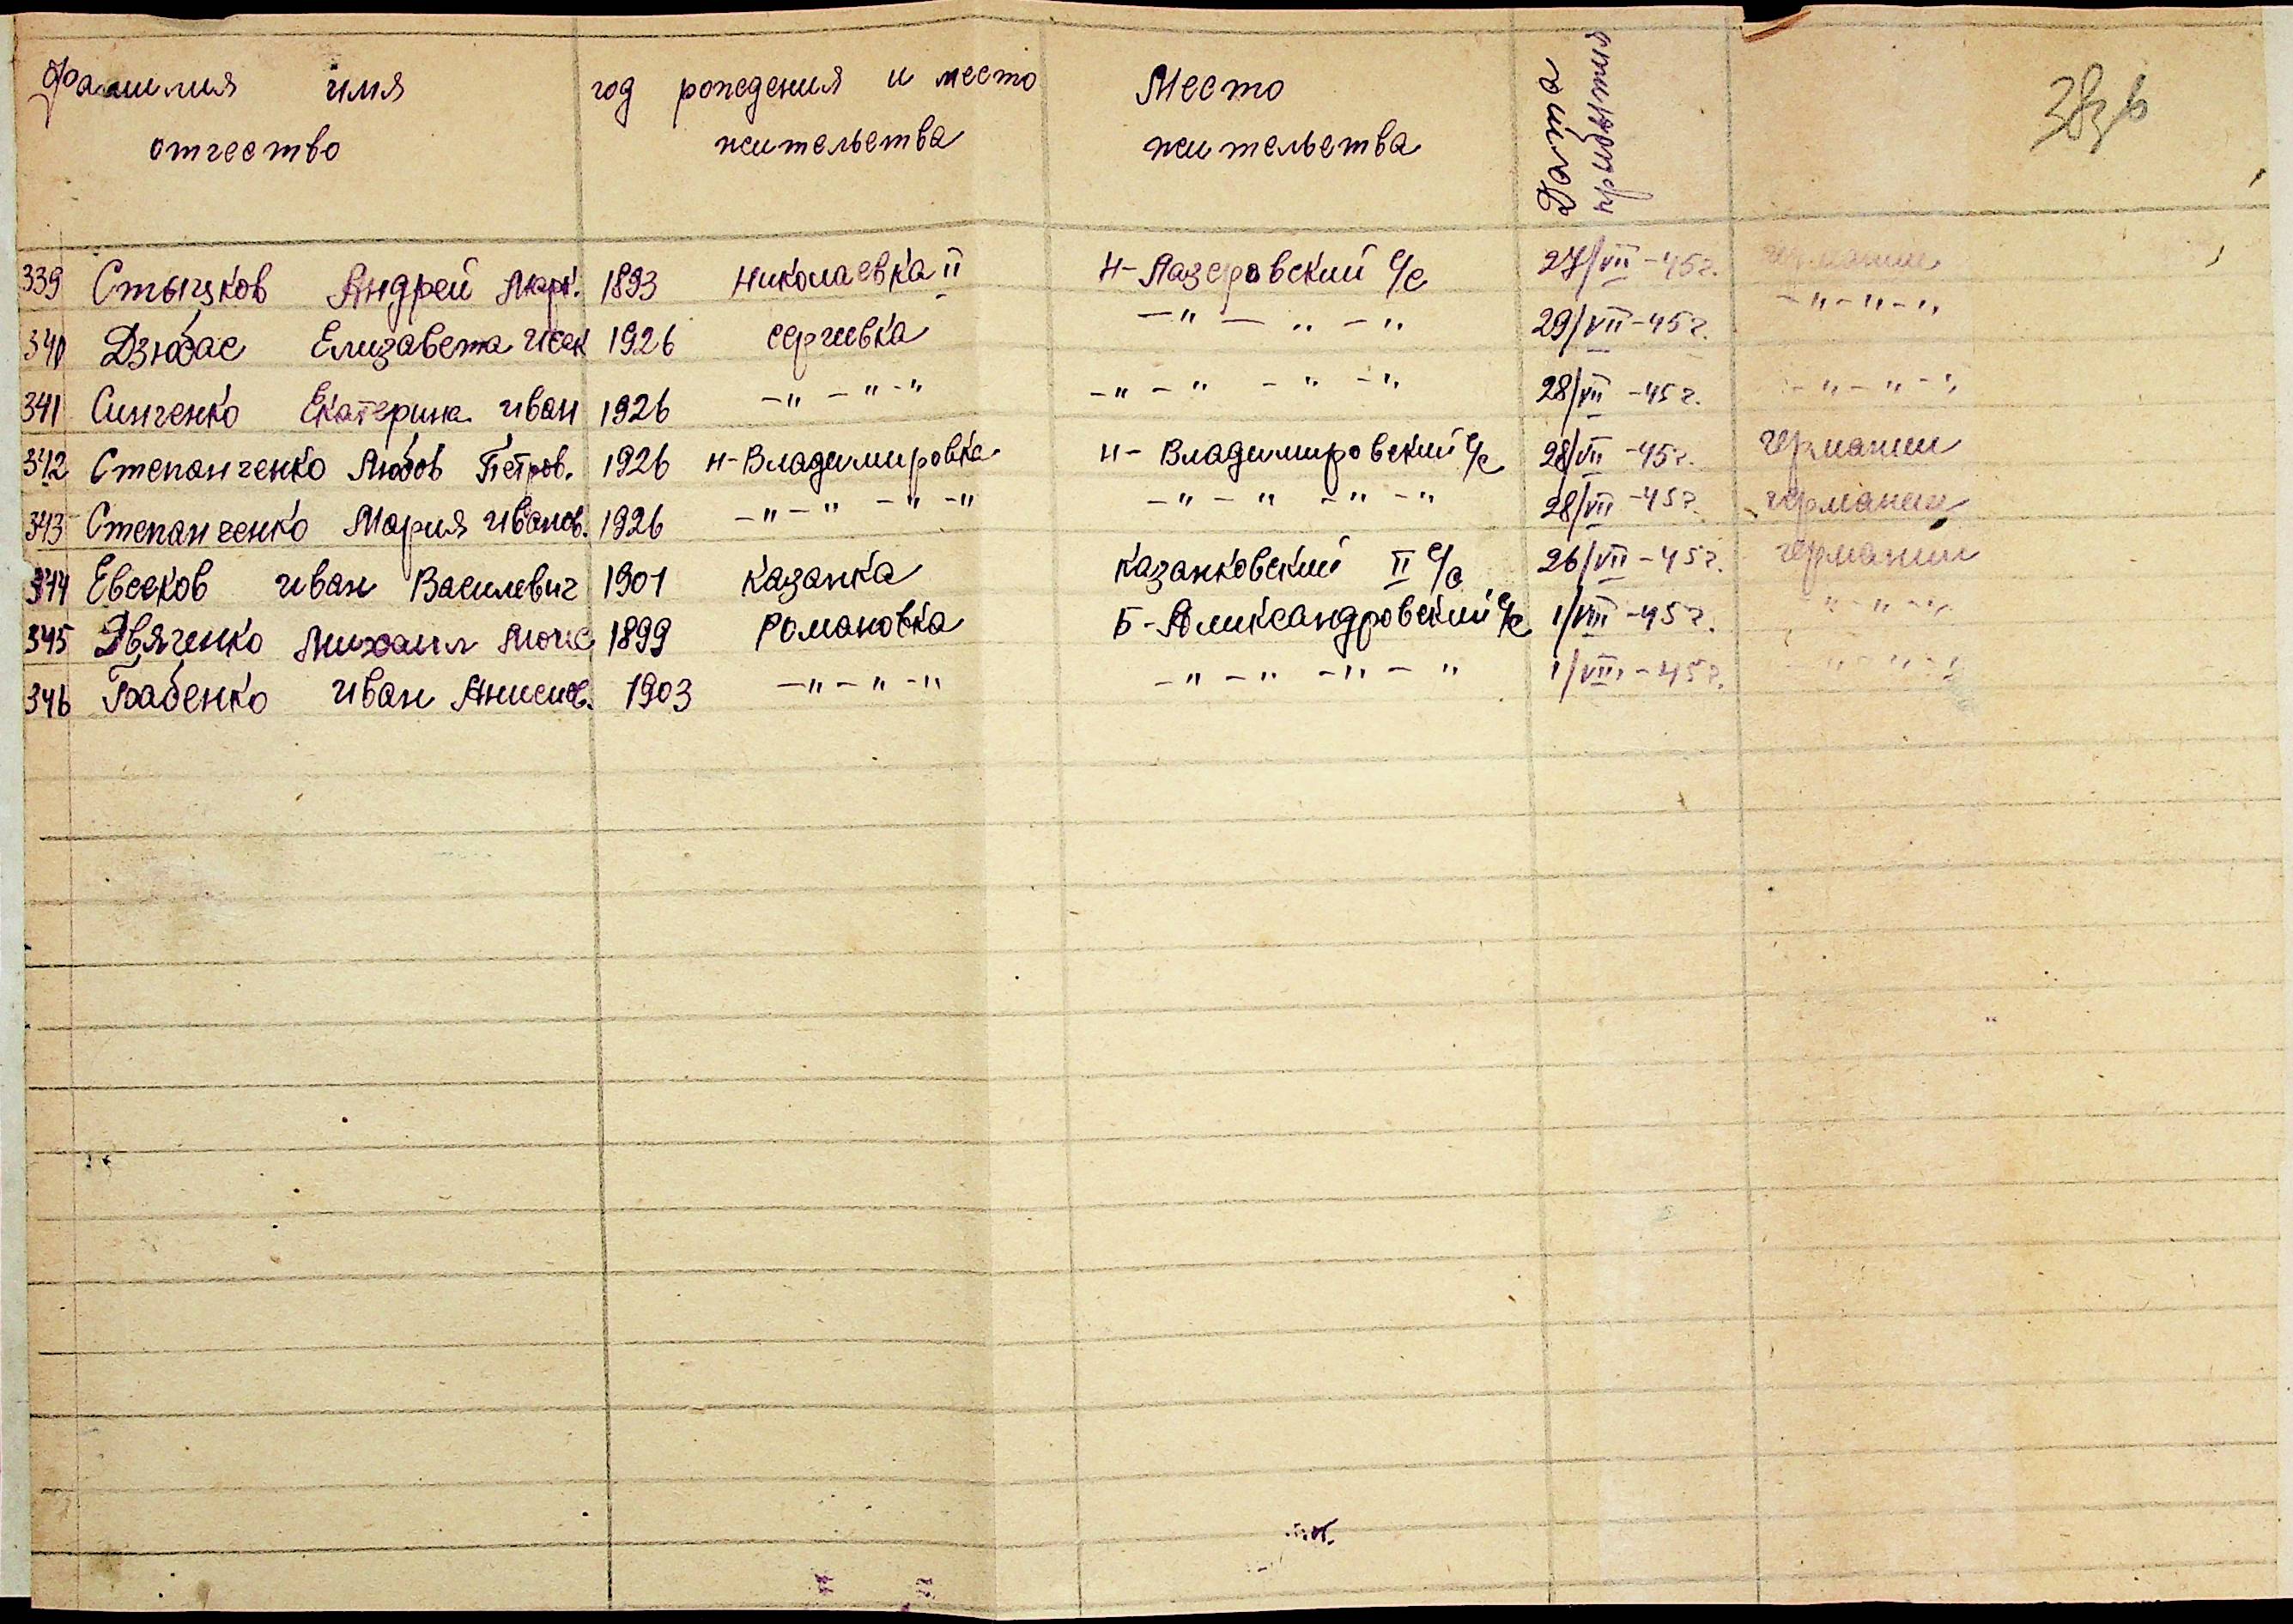 Фамилия имя отчество год рождения и место жительства Место жительства Дата прибытия
339 Стычков Андрей Марк. 1893 Николаевка II Н-Лазеровский с/с 27/VII-45г. германии
340 Дзюбас Елизавета Исак 1926 Сергиевка -"- " -" 29/VII-45г. -"-"-"
341 Синченко Екатерина Иван 1926 -"-"-" -"-" -" -" 28/VII-45г. -"-"-"
342 Степанченко Любов Петров. 1926 Н-Владимировка Н-Владимировский с/с 28/VII-45г. германии
343 Степанченко Мария Иванов. 1926 -"-" -"-" -"-" -"-" 28/VII-45г. германии
344 Евсеков Иван Василевич 1901 Казанка Казанковский II с/с 26/VII-45г. германии
345 Двяченко Михаил 1899 Романовка Б-Александровский с/с 1/VIII-45г. -"-"-"
346 Бабенко Иван Анисим. 1903 -"-"-" -"-" -"-" 1/VIII-45г. -"-"-"